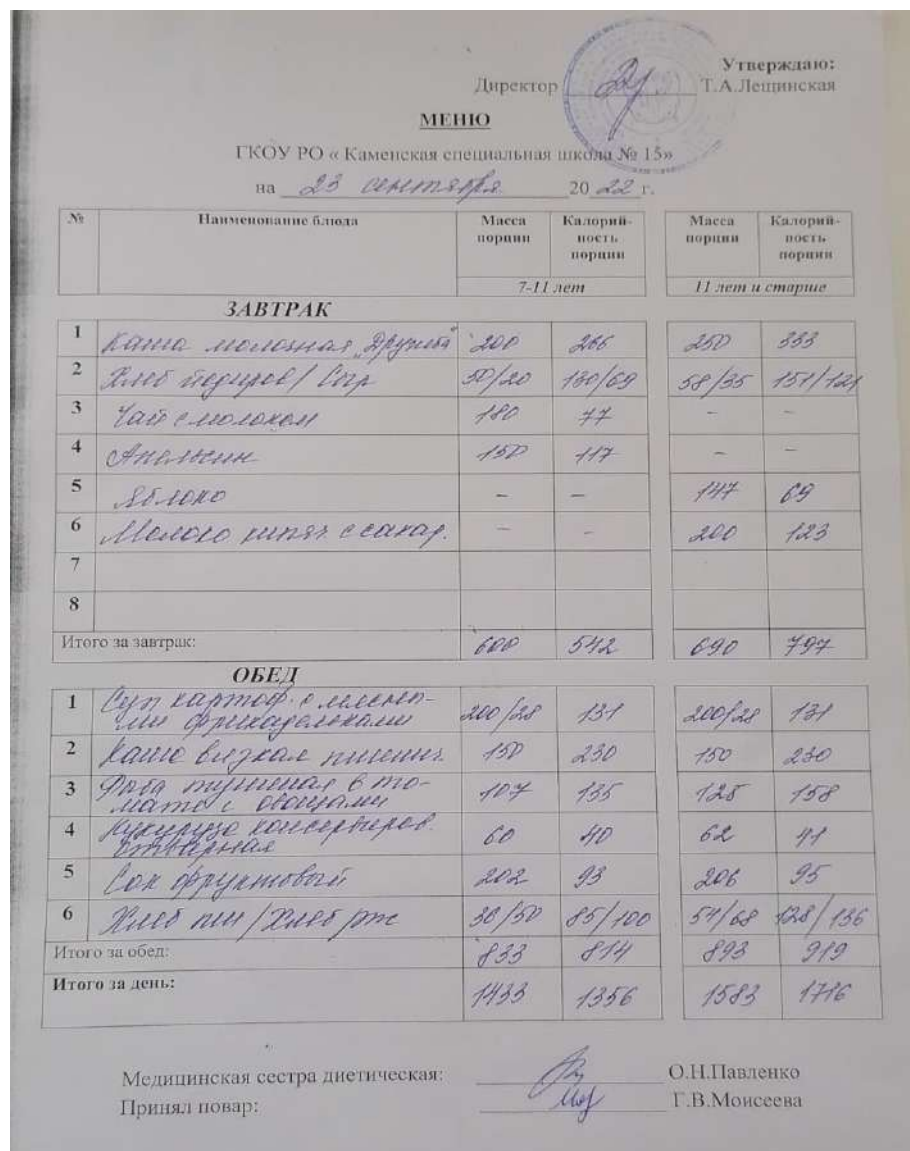 Утверждаю:
Директор Т.А.Лещинская
МЕНЮ
ГКОУ РО « Каменская специальная школа № 15»
на 23 сентября 2022 г.
№ Наименование блюда Масса порции Калорий-ность порции Масса порции Калорий-ность порции
7-11 лет 11 лет и старше
ЗАВТРАК
1 Каша молочная „Дружба" 200 266 250 333
2 Хлеб йодиров/ Сыр 50/20 130/69 58/35 151/121
3 Чай с молоком 180 77 – –
4 Апельсин 150 117 – –
5 Яблоко – – 147 69
6 Молоко кипяч. с сахар. – – 200 123
7
8
Итого за завтрак: 600 542 690 797
ОБЕД
1 Суп картоф. с мясны-
ми фрикадельками 200/28 131 200/28 131
2 Каша вязкая пшенич. 150 230 150 230
3 Рыба тушеная в то-
мате с овощами 107 135 125 158
4 Кукуруза консервиров.
отварная 60 40 62 41
5 Сок фруктовый 202 93 206 95
6 Хлеб пш/Хлеб рж 36/50 85/100 54/68 128/136
Итого за обед: 833 814 893 919
Итого за день: 1433 1356 1583 1716
Медицинская сестра диетическая: О.Н.Павленко
Принял повар: Г.В.Моисеева